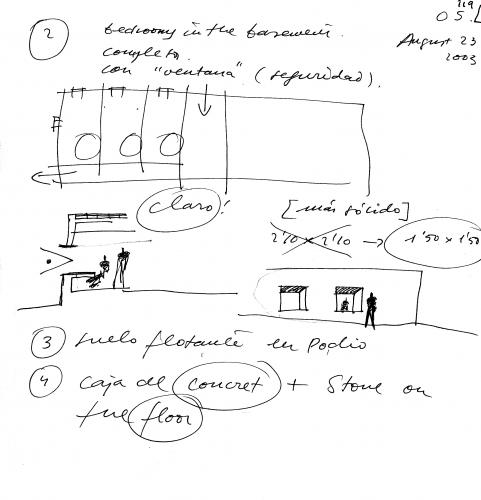 119
O S. L
August 23
2003
2 bedrooms in the basement.
completo.
con "ventana" (seguridad).
claro!
[más sólido]
2'10 x 2'10 → 1'50 x 1'50
3 suelo flotante en podio
4 caja de concret + stone on
the floor